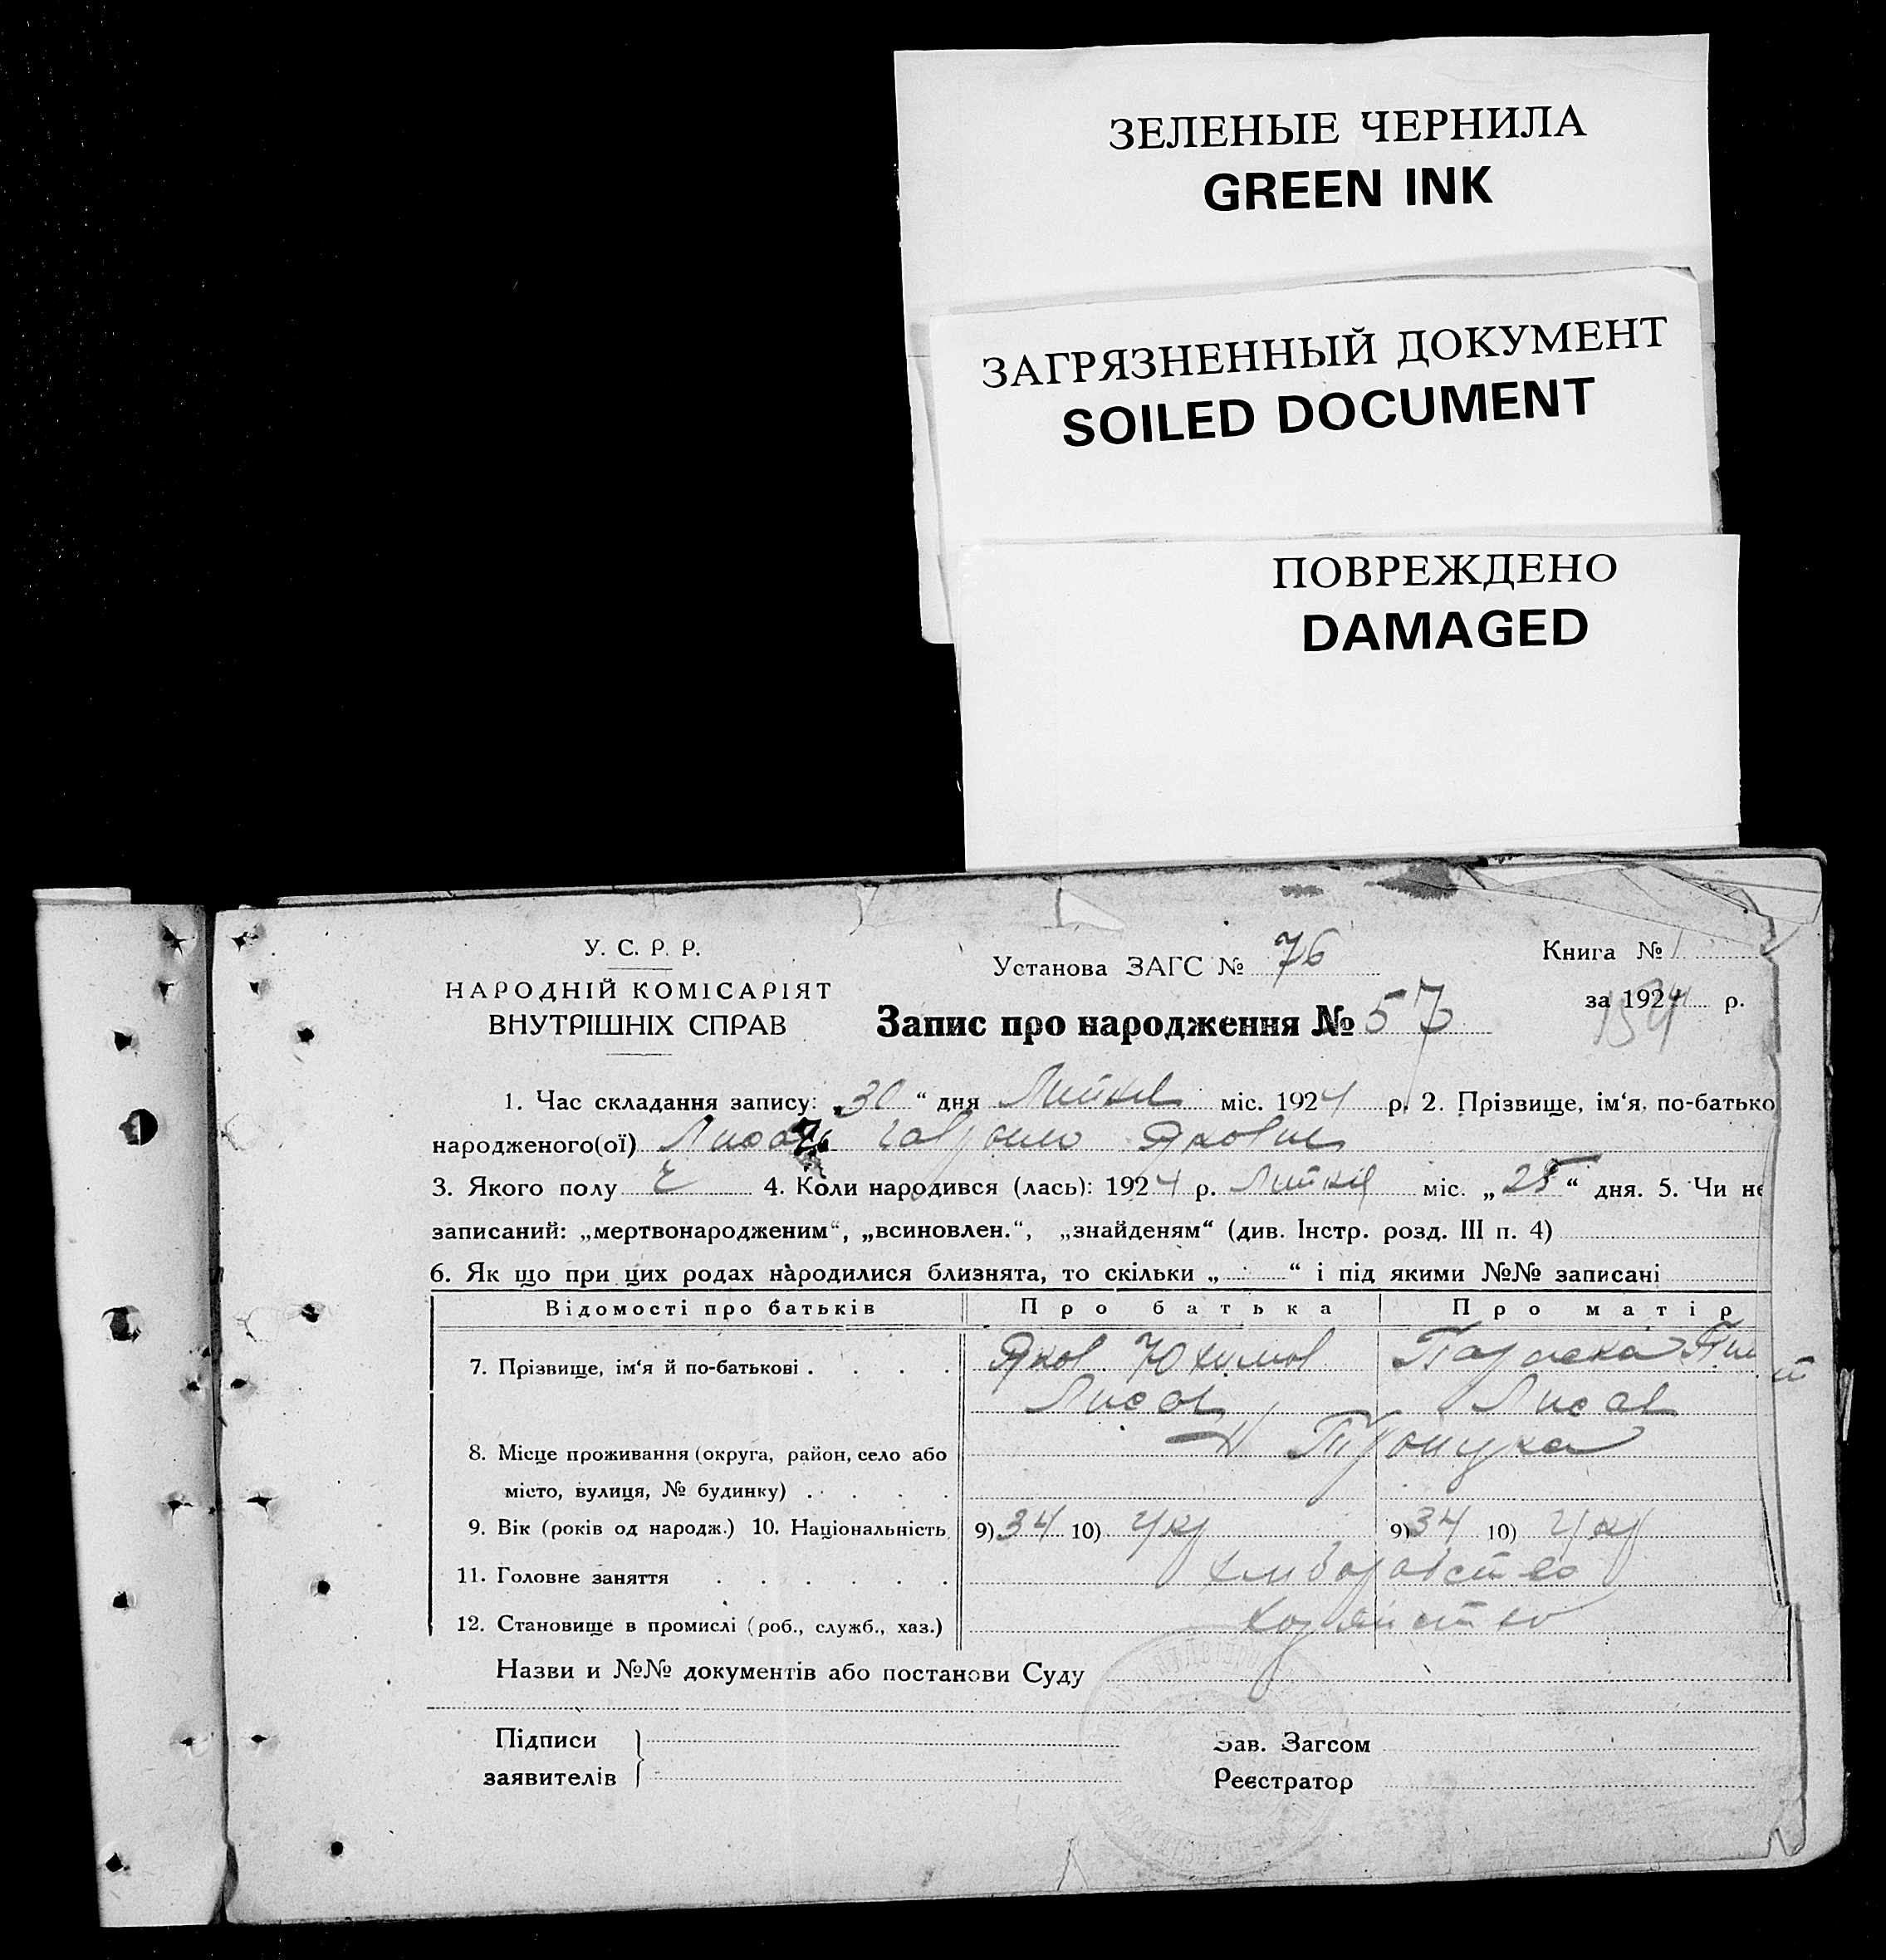 ЗЕЛЕНЫЕ ЧЕРНИЛА
GREEN INK
ЗАГРЯЗНЕННЫЙ ДОКУМЕНТ
SOILED DOCUMENT
ПОВРЕЖДЕНО
DAMAGED
У. С. Р. Р.
НАРОДНІЙ КОМІСАРІЯТ
ВНУТРІШНІХ СПРАВ
Установа ЗАГС № 76
Запис про народження № 57
Книга № 1
за 1924 р.
154
1. Час складання запису: „30“ дня міс. 1924 р. 2. Прізвище, ім‘я, по-батько
народженого(ої)
3. Якого полу Ч 4. Коли народився (лась): 1924 р. міс. „25“ дня. 5. Чи не
записаний: „мертвонародженим“, „всиновлен.“, „знайденям“ (див. Інстр. розд. III п. 4)
6. Як що при цих родах народилися близнята, то скільки „ “ і під якими №№ записані
Відомості про батьків Про батька Про матір
7. Прізвище, ім‘я й по-батькові . . . . Яков Юхимов Параска
8. Місце проживання (округа, район, село або
місто, вулиця, № будинку) . . . .
9. Вік (років од народж.) 10. Національність 9) 34 10) Укр 9) 34 10) Укр
11. Головне заняття . . . . . . хліборобство
12. Становище в промислі (роб., служб., хаз.)
Назви и №№ документів або постанови Суду
Підписи
заявителів
Зав. Загсом
Реєстратор